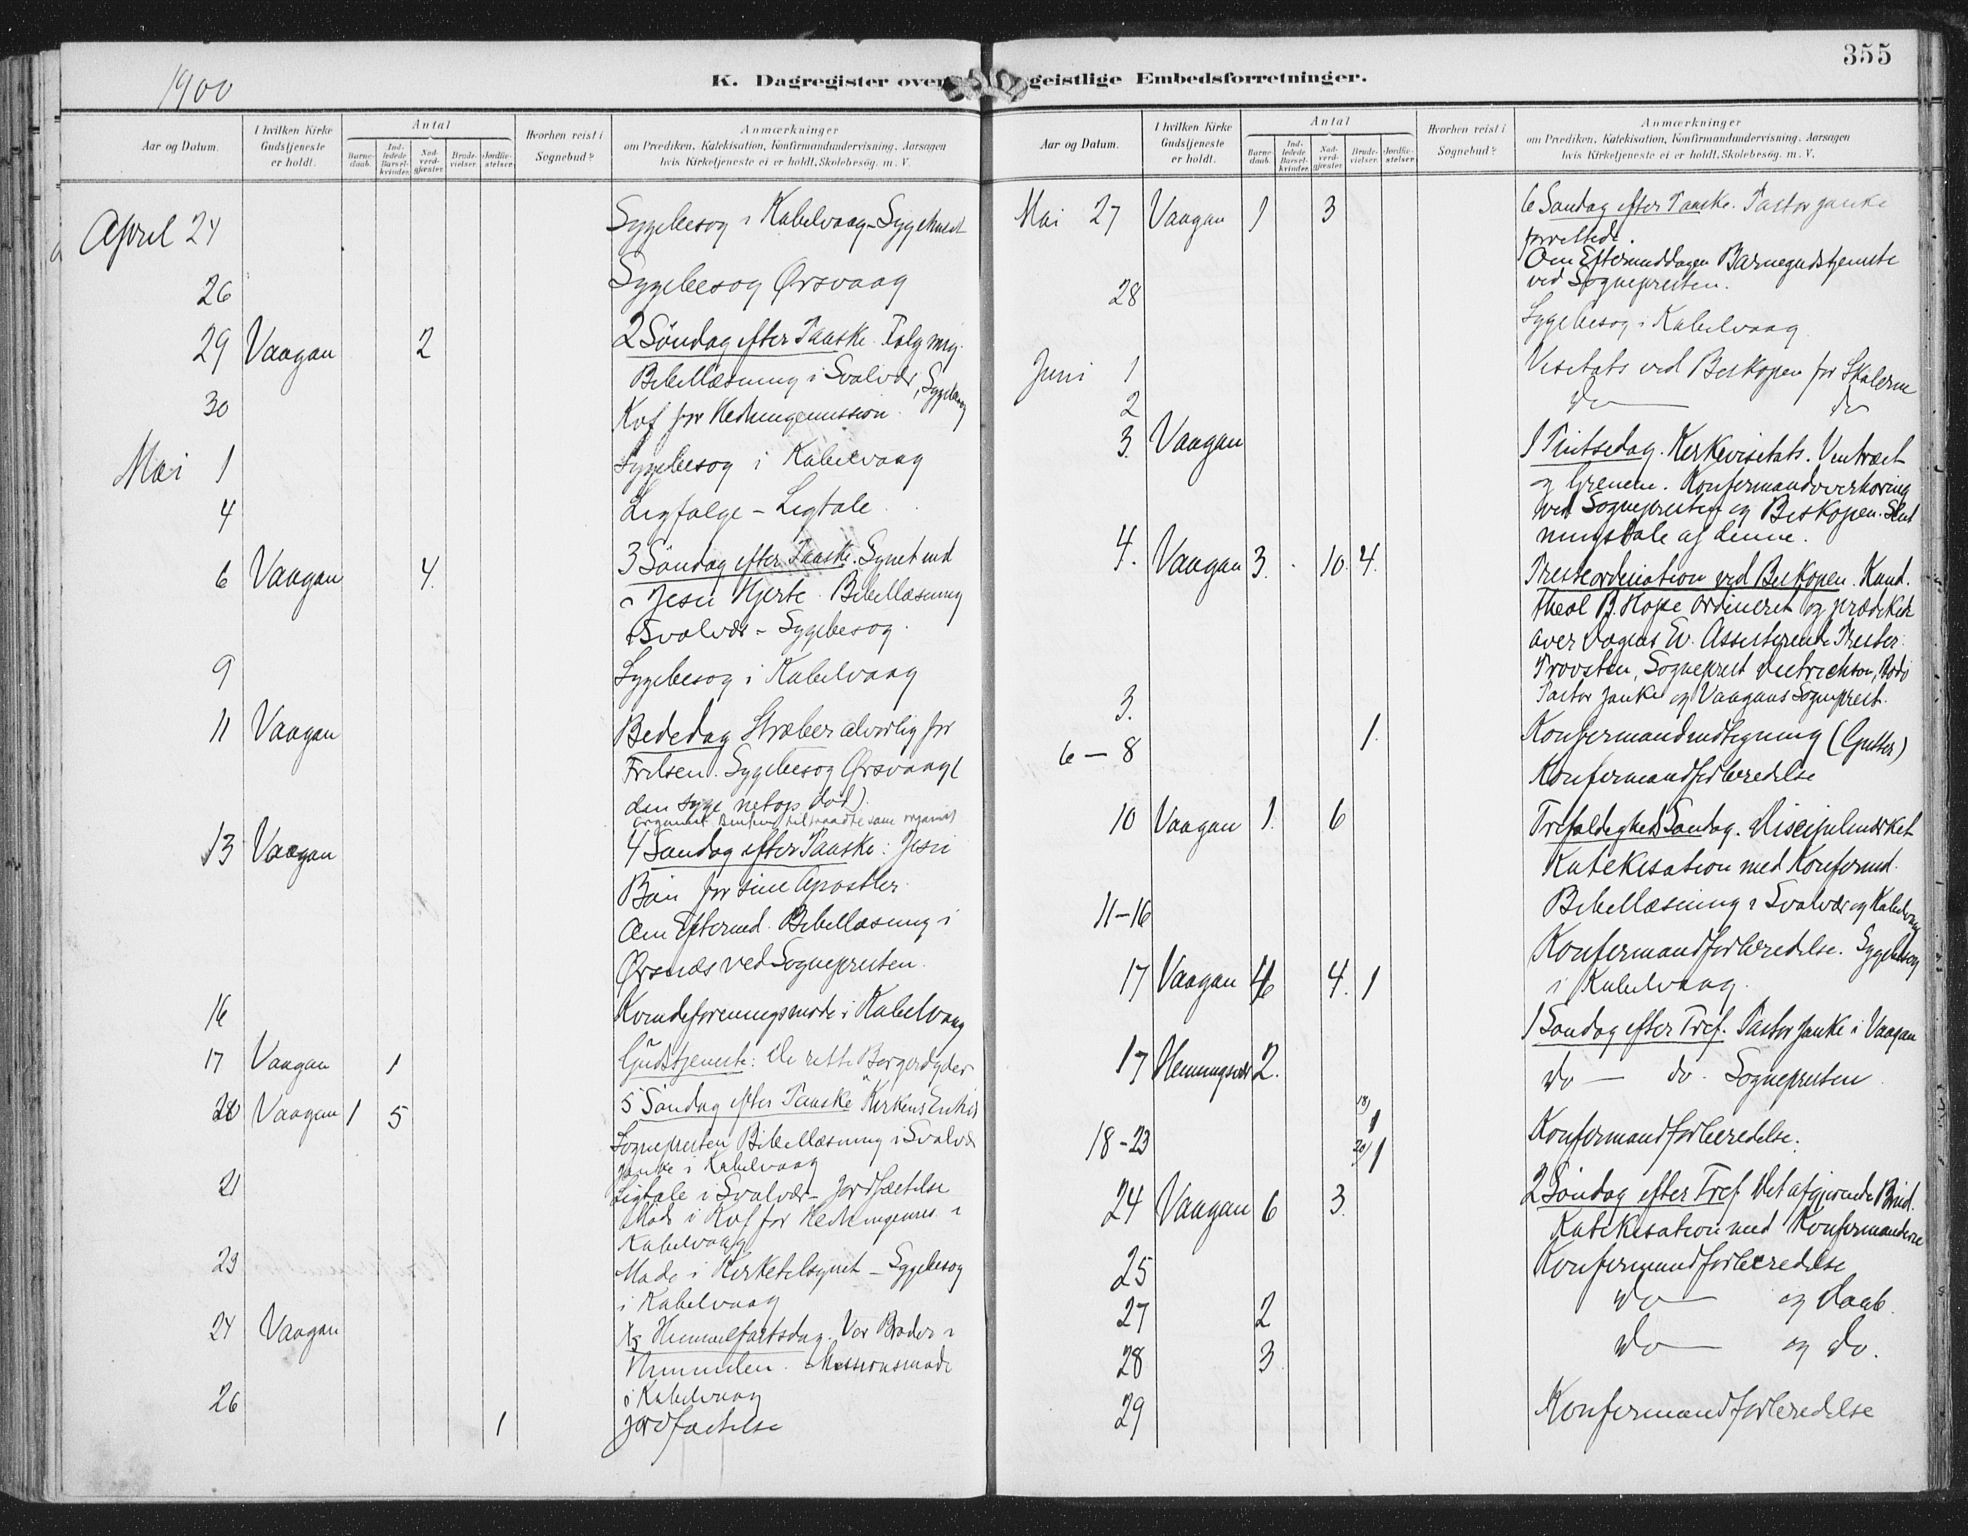 1900
K. Dagregister over geistlige Embedsforretninger.
355
Aar og Datum.
I hvilken Kirke Gudstjeneste er holdt.
Antal
Barnedaab.
Indledede Barselkvinder.
Nadverdgjæster.
Brudevielser.
Jordfæstelser.
Hvorhen reist i Sognebud?
Anmærkninger
om Prædiken, Katekisation, Konfirmandundervisning, Aarsagen
hvis Kirketjeneste ei er holdt, Skolebesøg, m. V.
April 24 Sygebesøg i Kabelvaag - Sygehuset
26 Sygebesøg Ørsvaag
29 Vaagan 2 2 Søndag efter Paaske. Følg mig.
Bibellæsning i Svolvær, Sygebesøg
30 Kvf for Hedningemission.
Mai 1 Sygebesøg i Kabelvaag
4 Ligfølge - Ligtale.
6 Vaagan 4. 3 Søndag efter Paaske. Synet ind
i Jesu Hjerte. Bibellæsning
i Svolvær - Sygebesøg.
9 Sygebesøg i Kabelvaag
11 Vaagan Bededag Stræber alvorlig for
Frelsen. Sygebesøg Ørsvaag (
den syge netop død).
Organist tiltraadte som organist
13 Vaagan 4 Søndag efter Paaske: Jesu
Bøn for sine Apostler.
Om Eftermd. Bibellæsning i
Ørsnæs ved Sognepresten.
16 Kvindeforeningsmøde i Kabelvaag
17 Vaagan 1 Gudstjeneste: De rette Borgerdyder
20 Vaagan 1 5 5 Søndag efter Paaske Kirkens
Sognepresten Bibellæsning i Svolvær
Janke i Kabelvaag
21 Ligtale i Svolvær - Jordfæstelse
Møde i Kvf for Hedningemis. i
Kabelvaag
23 Møde i Kirketilsynet - Sygebesøg
i Kabelvaag
24 Vaagan Kr Himmelfartsdag. Vor Broder i
Himmelen. Missionsmøde
i Kabelvaag
26 1 Jordfæstelse
Aar og Datum.
I hvilken Kirke Gudstjeneste er holdt.
Antal
Barnedaab.
Indledede Barselkvinder.
Nadverdgjæster.
Brudevielser.
Jordfæstelser.
Hvorhen reist i Sognebud?
Anmærkninger
om Prædiken, Katekisation, Konfirmandundervisning, Aarsagen
hvis Kirketjeneste ei er holdt, Skolebesøg, m. V.
Mai 27 Vaagan 1 3 6 Søndag efter Paaske. Pastor Janke
forrettede.
Om Eftermiddagen Barnegudstjeneste
ved Sognepresten.
28 Sygebesøg i Kabelvaag
Juni 1 Visitats ved Biskopen for Skolerne
2 do — do
3. Vaagan 1 Pintsedag. Kirkevisitats. Vintræet
og Grenene. Konfirmandoverhøring
ved Sognepresten og Biskopen. Slut
ningstale af denne.
4. Vaagan 3. 10. 4. Presteordination ved Biskopen. Kand.
theol B. Hope ordineret og prædiket
over dagens Ev. Assisterende Prester:
Provsten, Sogneprest Dietrichson, Bodø
Pastor Janke og Vaagans Sogneprest.
3. 1. Konfirmandindtegning (Gutter)
6 - 8 Konfirmandforberedelse
10 Vaagan 1. 6 Trefoldigheds Søndag. Discipelmærket
Katekisation med Konfirmd.
Bibellæsning i Svolvær og Kabelvaag
11-16 Konfirmandforberedelse. Sygebesøg
i Kabelvaag.
17 Vaagan 4 4. 1 1 Søndag efter Tref. Pastor Janke i Vaagan
17 Henningsvær 2. do — do. Sognepresten
18-23 18/ 1 20/ 1 Konfirmandforberedelse.
24 Vaagan 6 3. 2 Søndag efter Tref Det afgjørende Brud.
Katekisation med Konfirmanderne
25 Konfirmandforberedelse
27 2 do — og Daab.
28 3 do — og do.
29 Konfirmandforberedelse